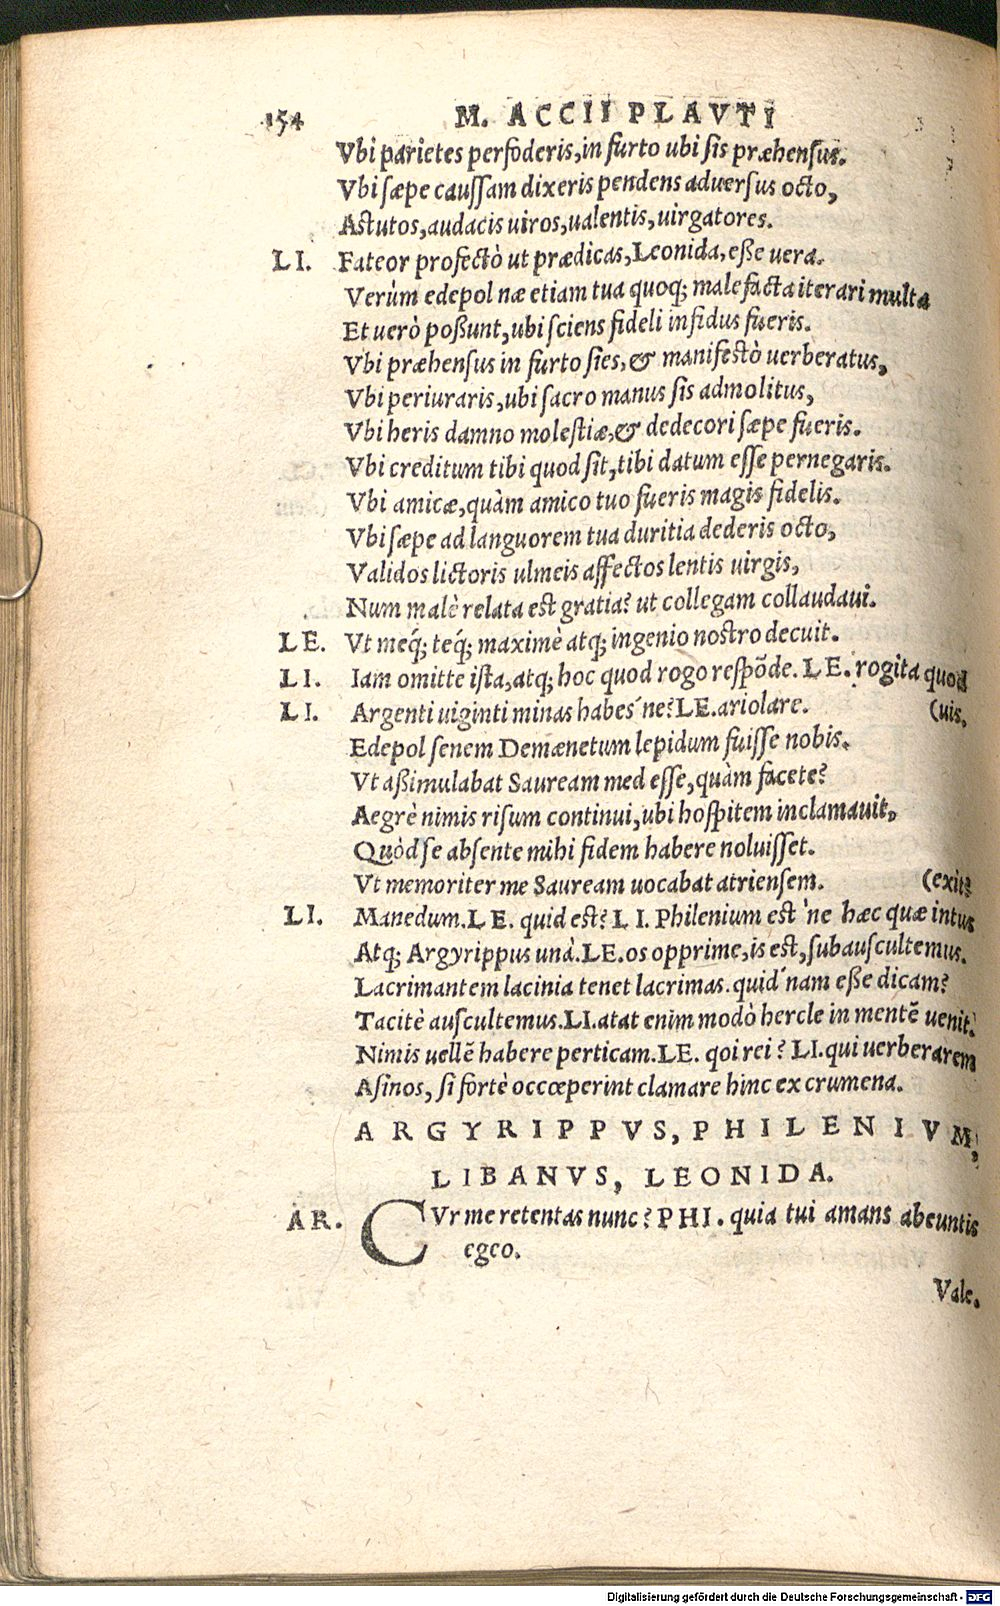 154 M. ACCII PLAVTI
Vbi parietes perfoderis, in furto ubi sis præhensus.
Vbi sæpe caussam dixeris pendens aduersus octo,
Astutos, audacis uiros, ualentis, uirgatores.
LI. Fateor profectò ut prædicas, Leonida, eße uera.
Verùm edepol næ etiam tua quoq; malefacta iterari multa
Et uerò poßunt, ubi sciens fideli infidus fueris.
Vbi præhensus in furto sies, & manifestò uerberatus,
Vbi periuraris, ubi sacro manus sis admolitus,
Vbi heris damno molestiæ, & dedecori sæpe fueris.
Vbi creditum tibi quod sit, tibi datum esse pernegaris.
Vbi amicæ, quàm amico tuo fueris magis fidelis.
Vbi sæpe ad languorem tua duritia dederis octo,
Validos lictoris ulmeis affectos lentis uirgis,
Num malè relata est gratia? ut collegam collaudaui.
LE. Vt meq́; teq́; maximè atq; ingenio nostro decuit.
LI. Iam omitte ista, atq; hoc quod rogo respõde. LE. rogita quod
LI. Argenti uiginti minas habes´ne? LE. ariolare. (uis.
Edepol senem Demænetum lepidum fuisse nobis.
Vt aßimulabat Sauream med esse, quàm facete?
Aegrè nimis risum continui, ubi hospitem inclamauit,
Quòd se absente mihi fidem habere noluisset.
Vt memoriter me Sauream uocabat atriensem. (exit?
LI. Manedum. LE. quid est? LI. Philenium est´ne hæc quæ intus
Atq; Argyrippus unà. LE. os opprime, is est, subauscultemus.
Lacrimantem lacinia tenet lacrimas. quid´nam eße dicam?
Tacitè auscultemus. LI. atat enim modò hercle in mentẽ uenit.
Nimis uellẽ habere perticam. LE. qoi rei? LI. qui uerberarem
Asinos, si fortè occœperint clamare hinc ex crumena.
ARGYRIPPVS, PHILENIVM,
LIBANVS, LEONIDA.
AR. CVr me retentas nunc? PHI. quia tui amans abeuntis
egeo.
Vale.
Digitalisierung gefördert durch die Deutsche Forschungsgemeinschaft - DFG